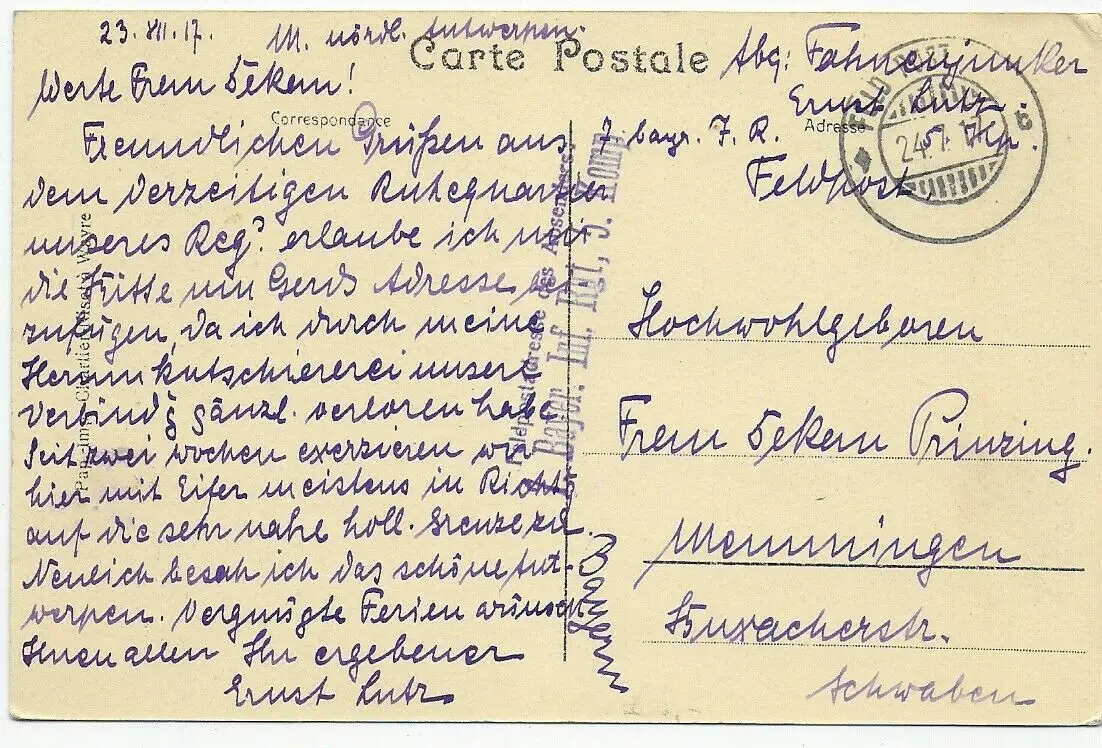 23. VII. 17. M. nördl. Antwerpen.
Carte Postale
Werte Frau Dekan!
Correspondance
Freundlichen Grüßen aus
dem derzeitigen Ruhequartier
unseres Reg? erlaube ich mir
die Bitte um Gerds Adresse bei
zufügen, da ich durch meine
Herumkutschiererei unsere
Verbind'g gänzl. verloren habe
Seit zwei Wochen exerzieren wir
hier mit Eifer meistens in Richtg
auf die sehr nahe holl. Grenze zu.
Neulich besah ich das schöne Ant-
werpen. Vergnügte Ferien wünscht
Ihnen allen Ihr ergebener
Ernst Lutz
Abg: Fahnenjunker
Ernst Lutz.
Adresse
7 bayr. I. R. 5. Kp.
Feldpost.
FELDPOST
24.7.17
c
Feldpostadresse des Absenders:
Bayer. Inf. Rgt, 5. Komp.
Hochwohlgeboren
Frau Dekan Prinzing.
Memmingen
Buxacherstr.
Schwaben
Bayern